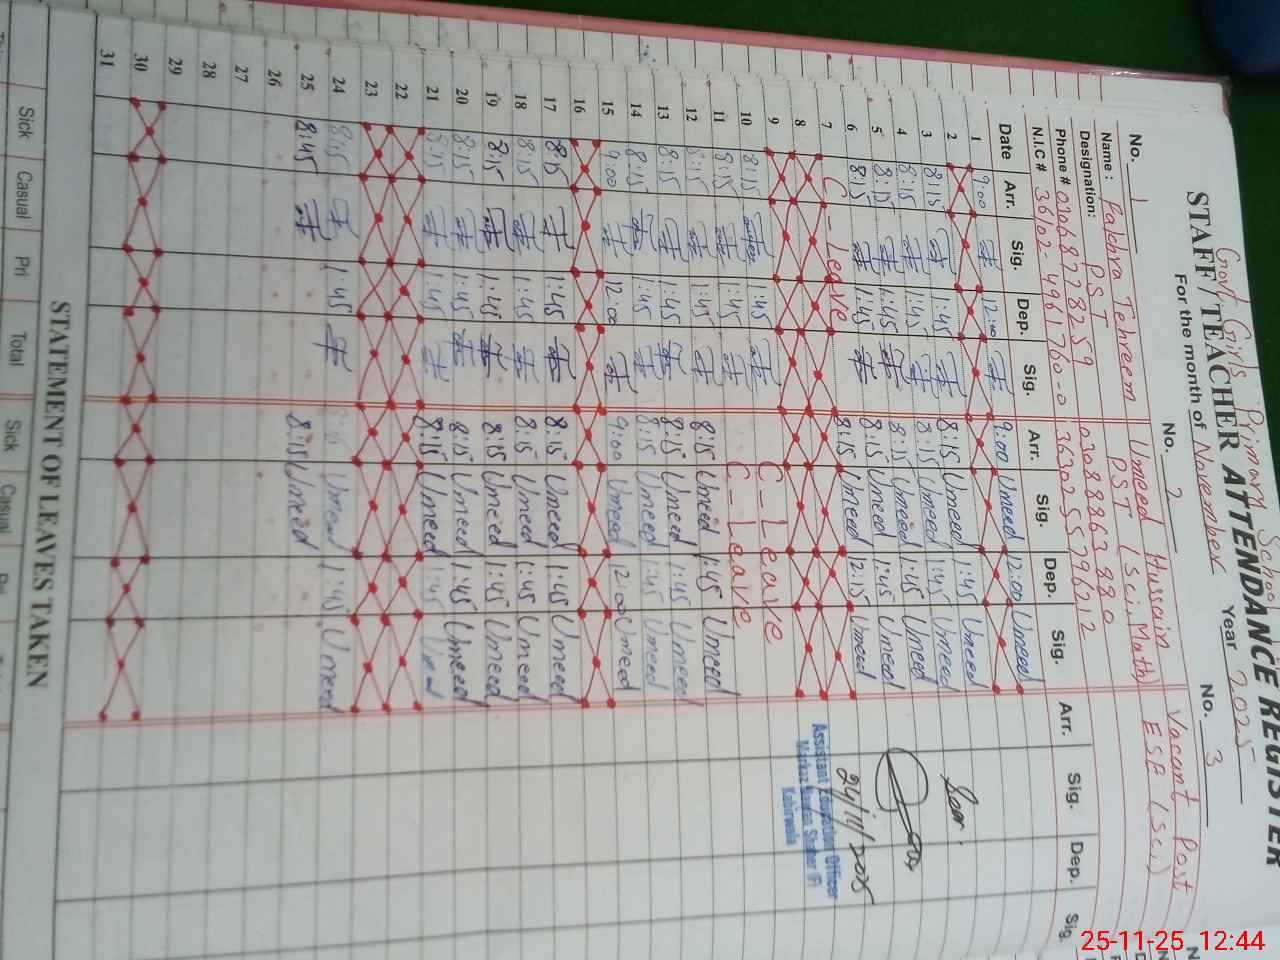 Govt Girls Primary School
STAFF/TEACHER ATTENDANCE REGISTER
For the month of November Year 2025
No. 1 No. 2 No. 3
Name: Umeed Hussain Vacant Post
Designation: PST PST (Sci.Math) ESE (Sci)
Phone # 03068778259 03088863880
N.I.C # 36102-4961760-0
Date Arr. Sig. Dep. Sig. Arr. Sig. Dep. Sig. Arr. Sig. Dep. Sig.
1 9:00 12:00 9:00 Umeed 12:00 Umeed
2
3 8:15 1:45 8:15 Umeed 1:45 Umeed
4 8:15 1:45 8:15 Umeed 1:45 Umeed
5 8:15 1:45 8:15 Umeed 1:45 Umeed
6 8:15 1:45 8:15 Umeed 1:45 Umeed
7 C-Leave 8:15 Umeed 12:15 Umeed
8
9
10 8:15 1:45 C-Leave
11 8:15 1:45 C-Leave
12 8:15 1:45 8:15 Umeed 1:45 Umeed
13 8:15 1:45 8:15 Umeed 1:45 Umeed
14 8:15 1:45 8:15 Umeed 1:45 Umeed
15 9:00 12:00 9:00 Umeed 12:00 Umeed
16
17 8:15 1:45 8:15 Umeed 1:45 Umeed
18 8:15 1:45 8:15 Umeed 1:45 Umeed
19 8:15 1:45 8:15 Umeed 1:45 Umeed
20 8:15 1:45 8:15 Umeed 1:45 Umeed
21 8:15 1:45 8:15 Umeed 1:45 Umeed
22
23
24 8:15 1:45 8:15 Umeed 1:45 Umeed
25 8:45 8:15 Umeed
26
27
28
29
30
31
Seen.
24/11/2025
Assistant Education Officer
Markaz Shaher (F)
Kabirwala
STATEMENT OF LEAVES TAKEN
Sick Casual Pri Total Sick Casual
25-11-25 12:44